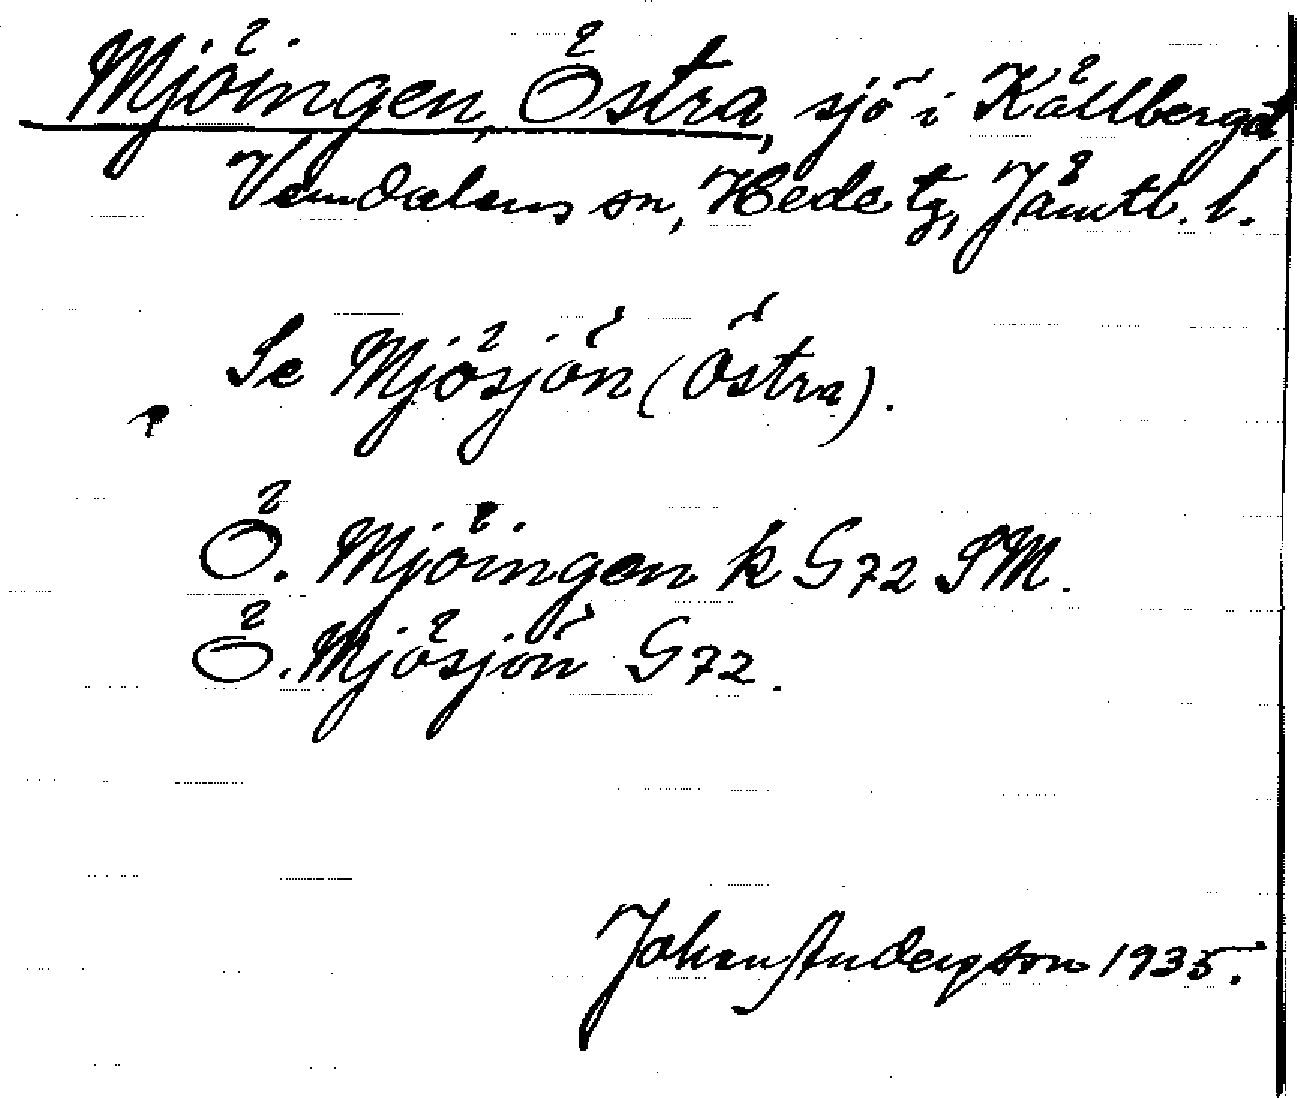 Mjöingen, Östra, sjö i Källberget
Vemdalens sn, Hede tg, Jämtl. l.
Se Mjösjön (Östra).
Ö. Mjöingen k G72 SM.
Ö. Mjösjön G72.
Johan Anderzson 1935.